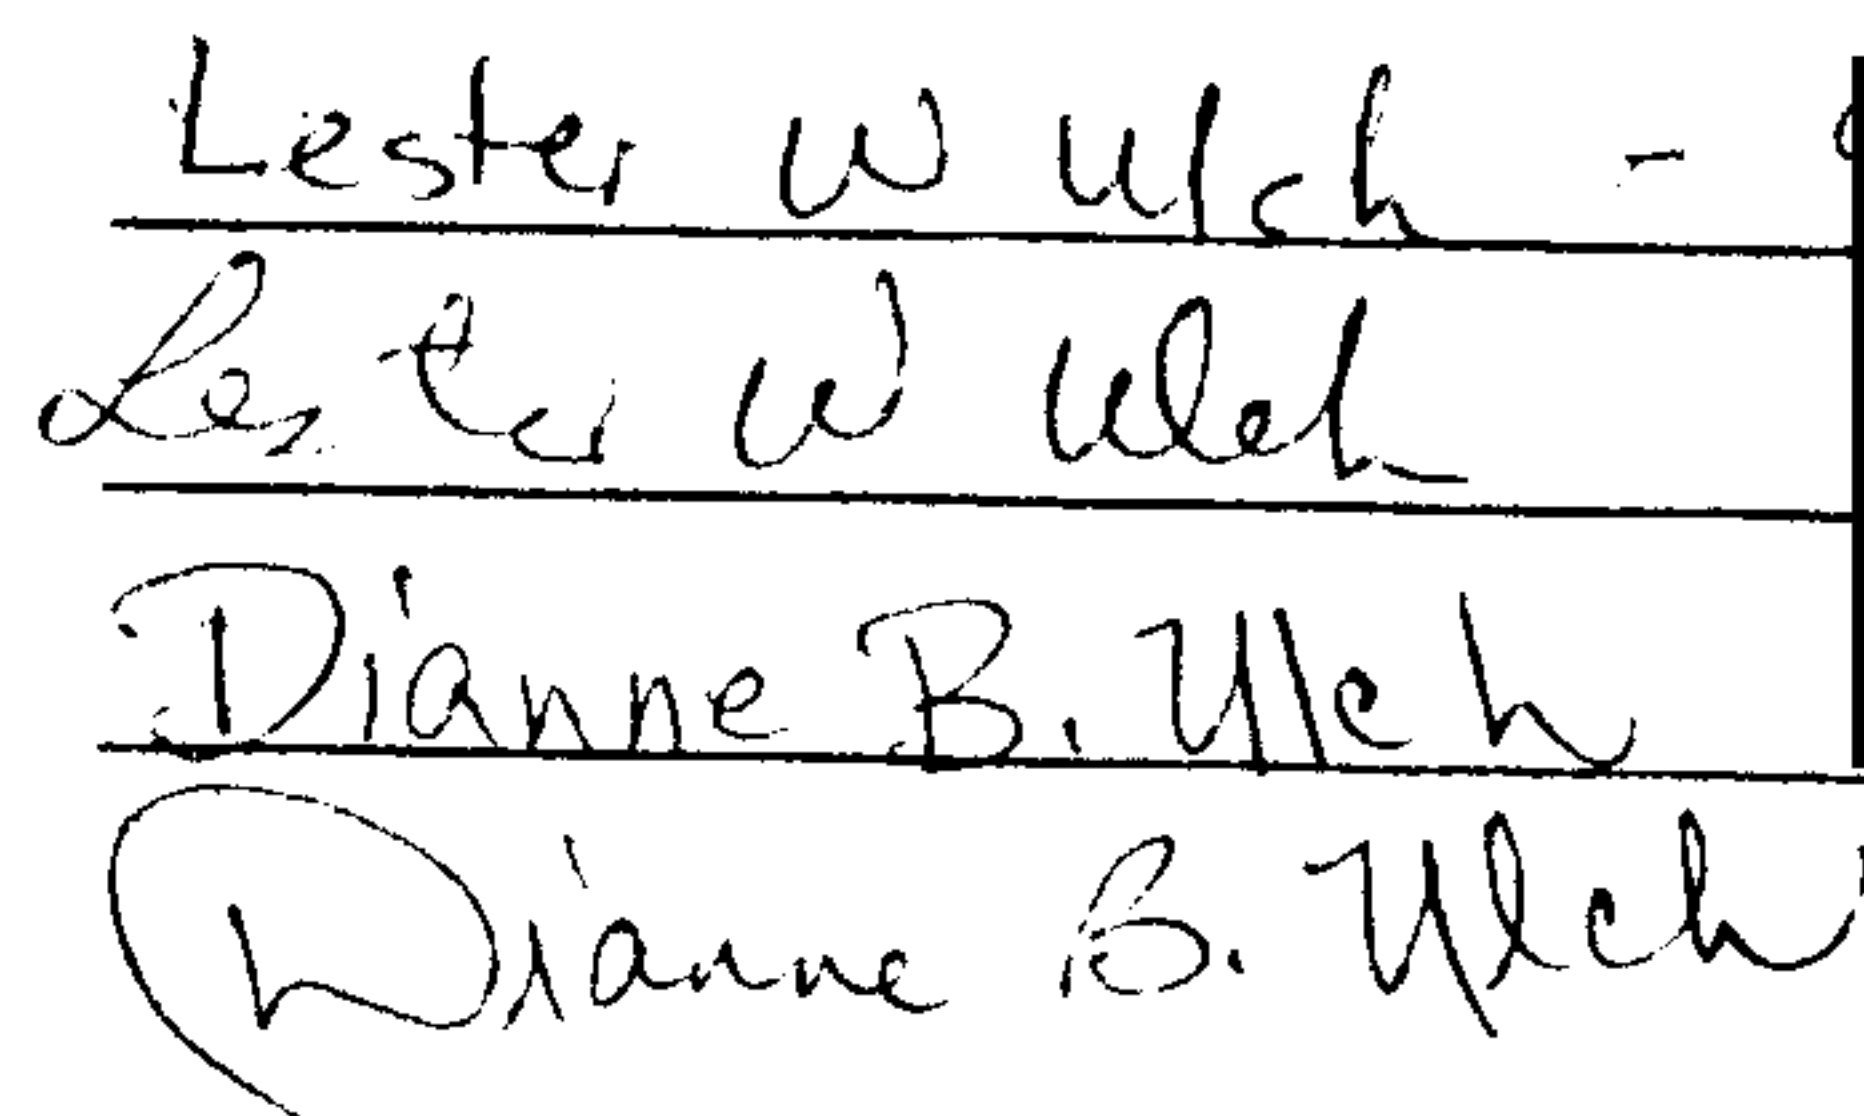 Lester W Ulch -
Lester W Ulch
Dianne B. Ulch
Dianne B. Ulch